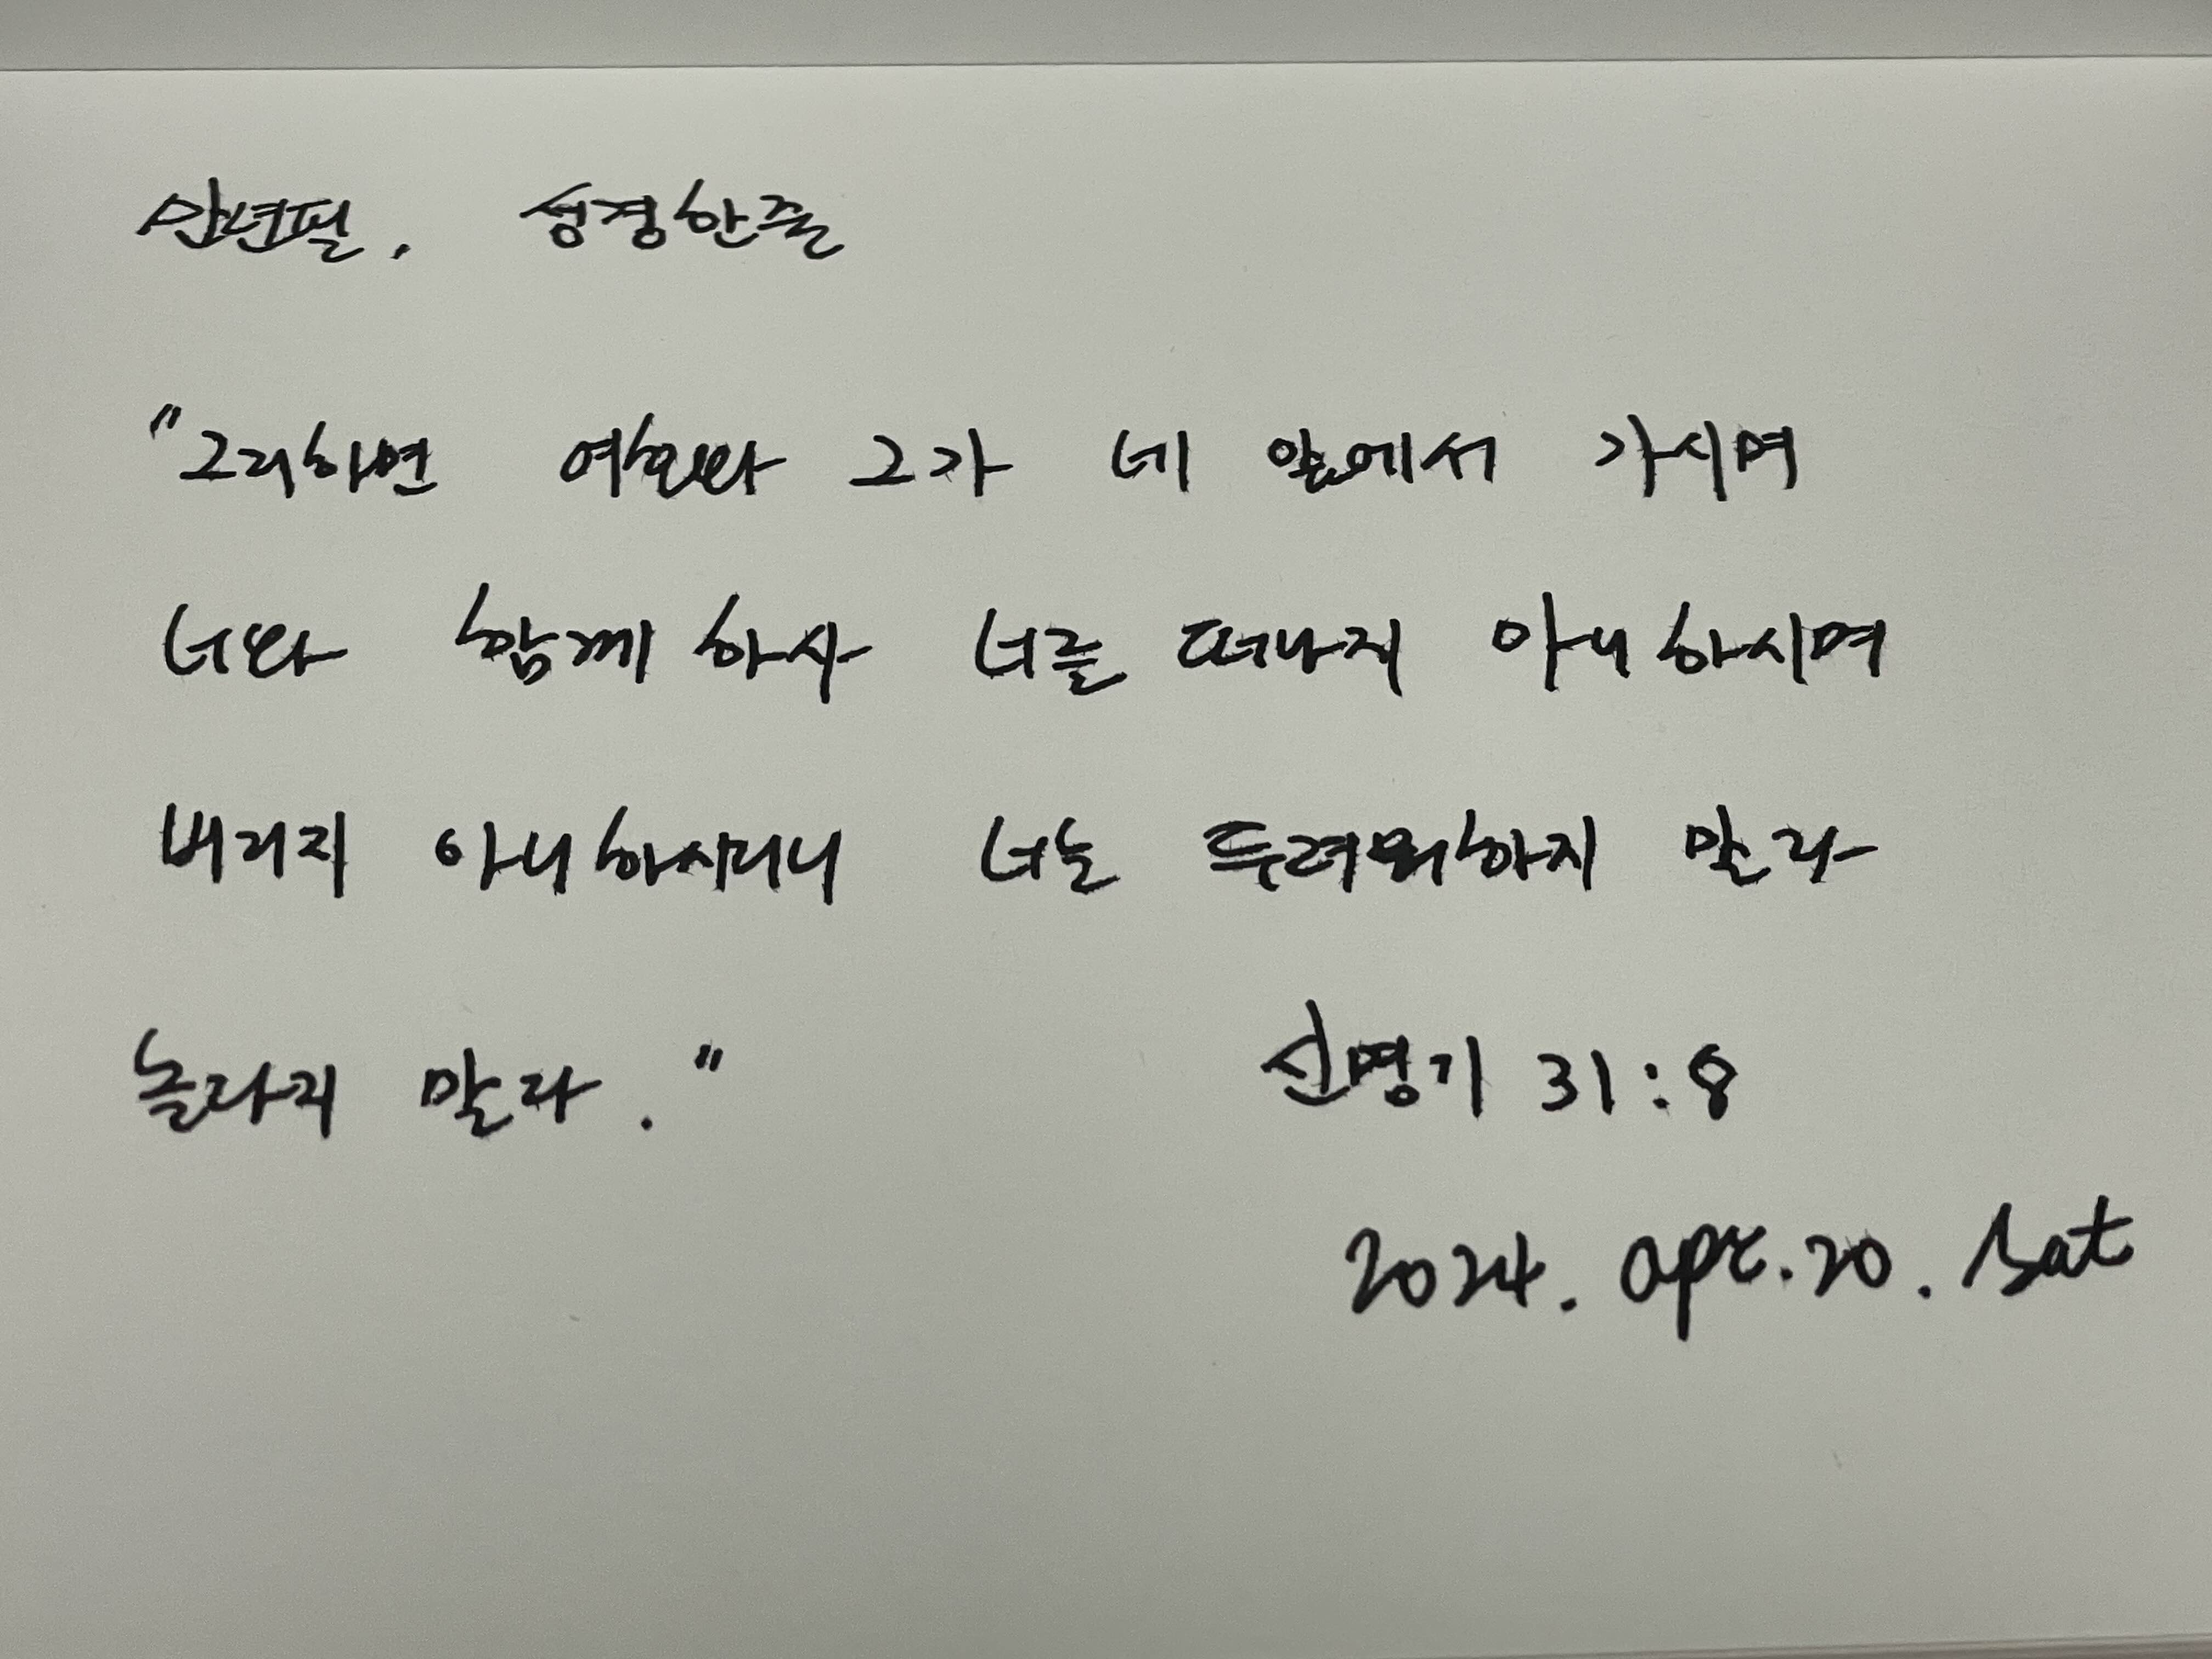 만년필. 성경한줄
"그리하면 여호와 그가 네 앞에서 가시며
너와 함께 하사 너를 떠나지 아니하시며
버리지 아니하시리니 너는 두려워하지 말라
놀라지 말라."
신명기 31:8
2024. apr. 20. Sat